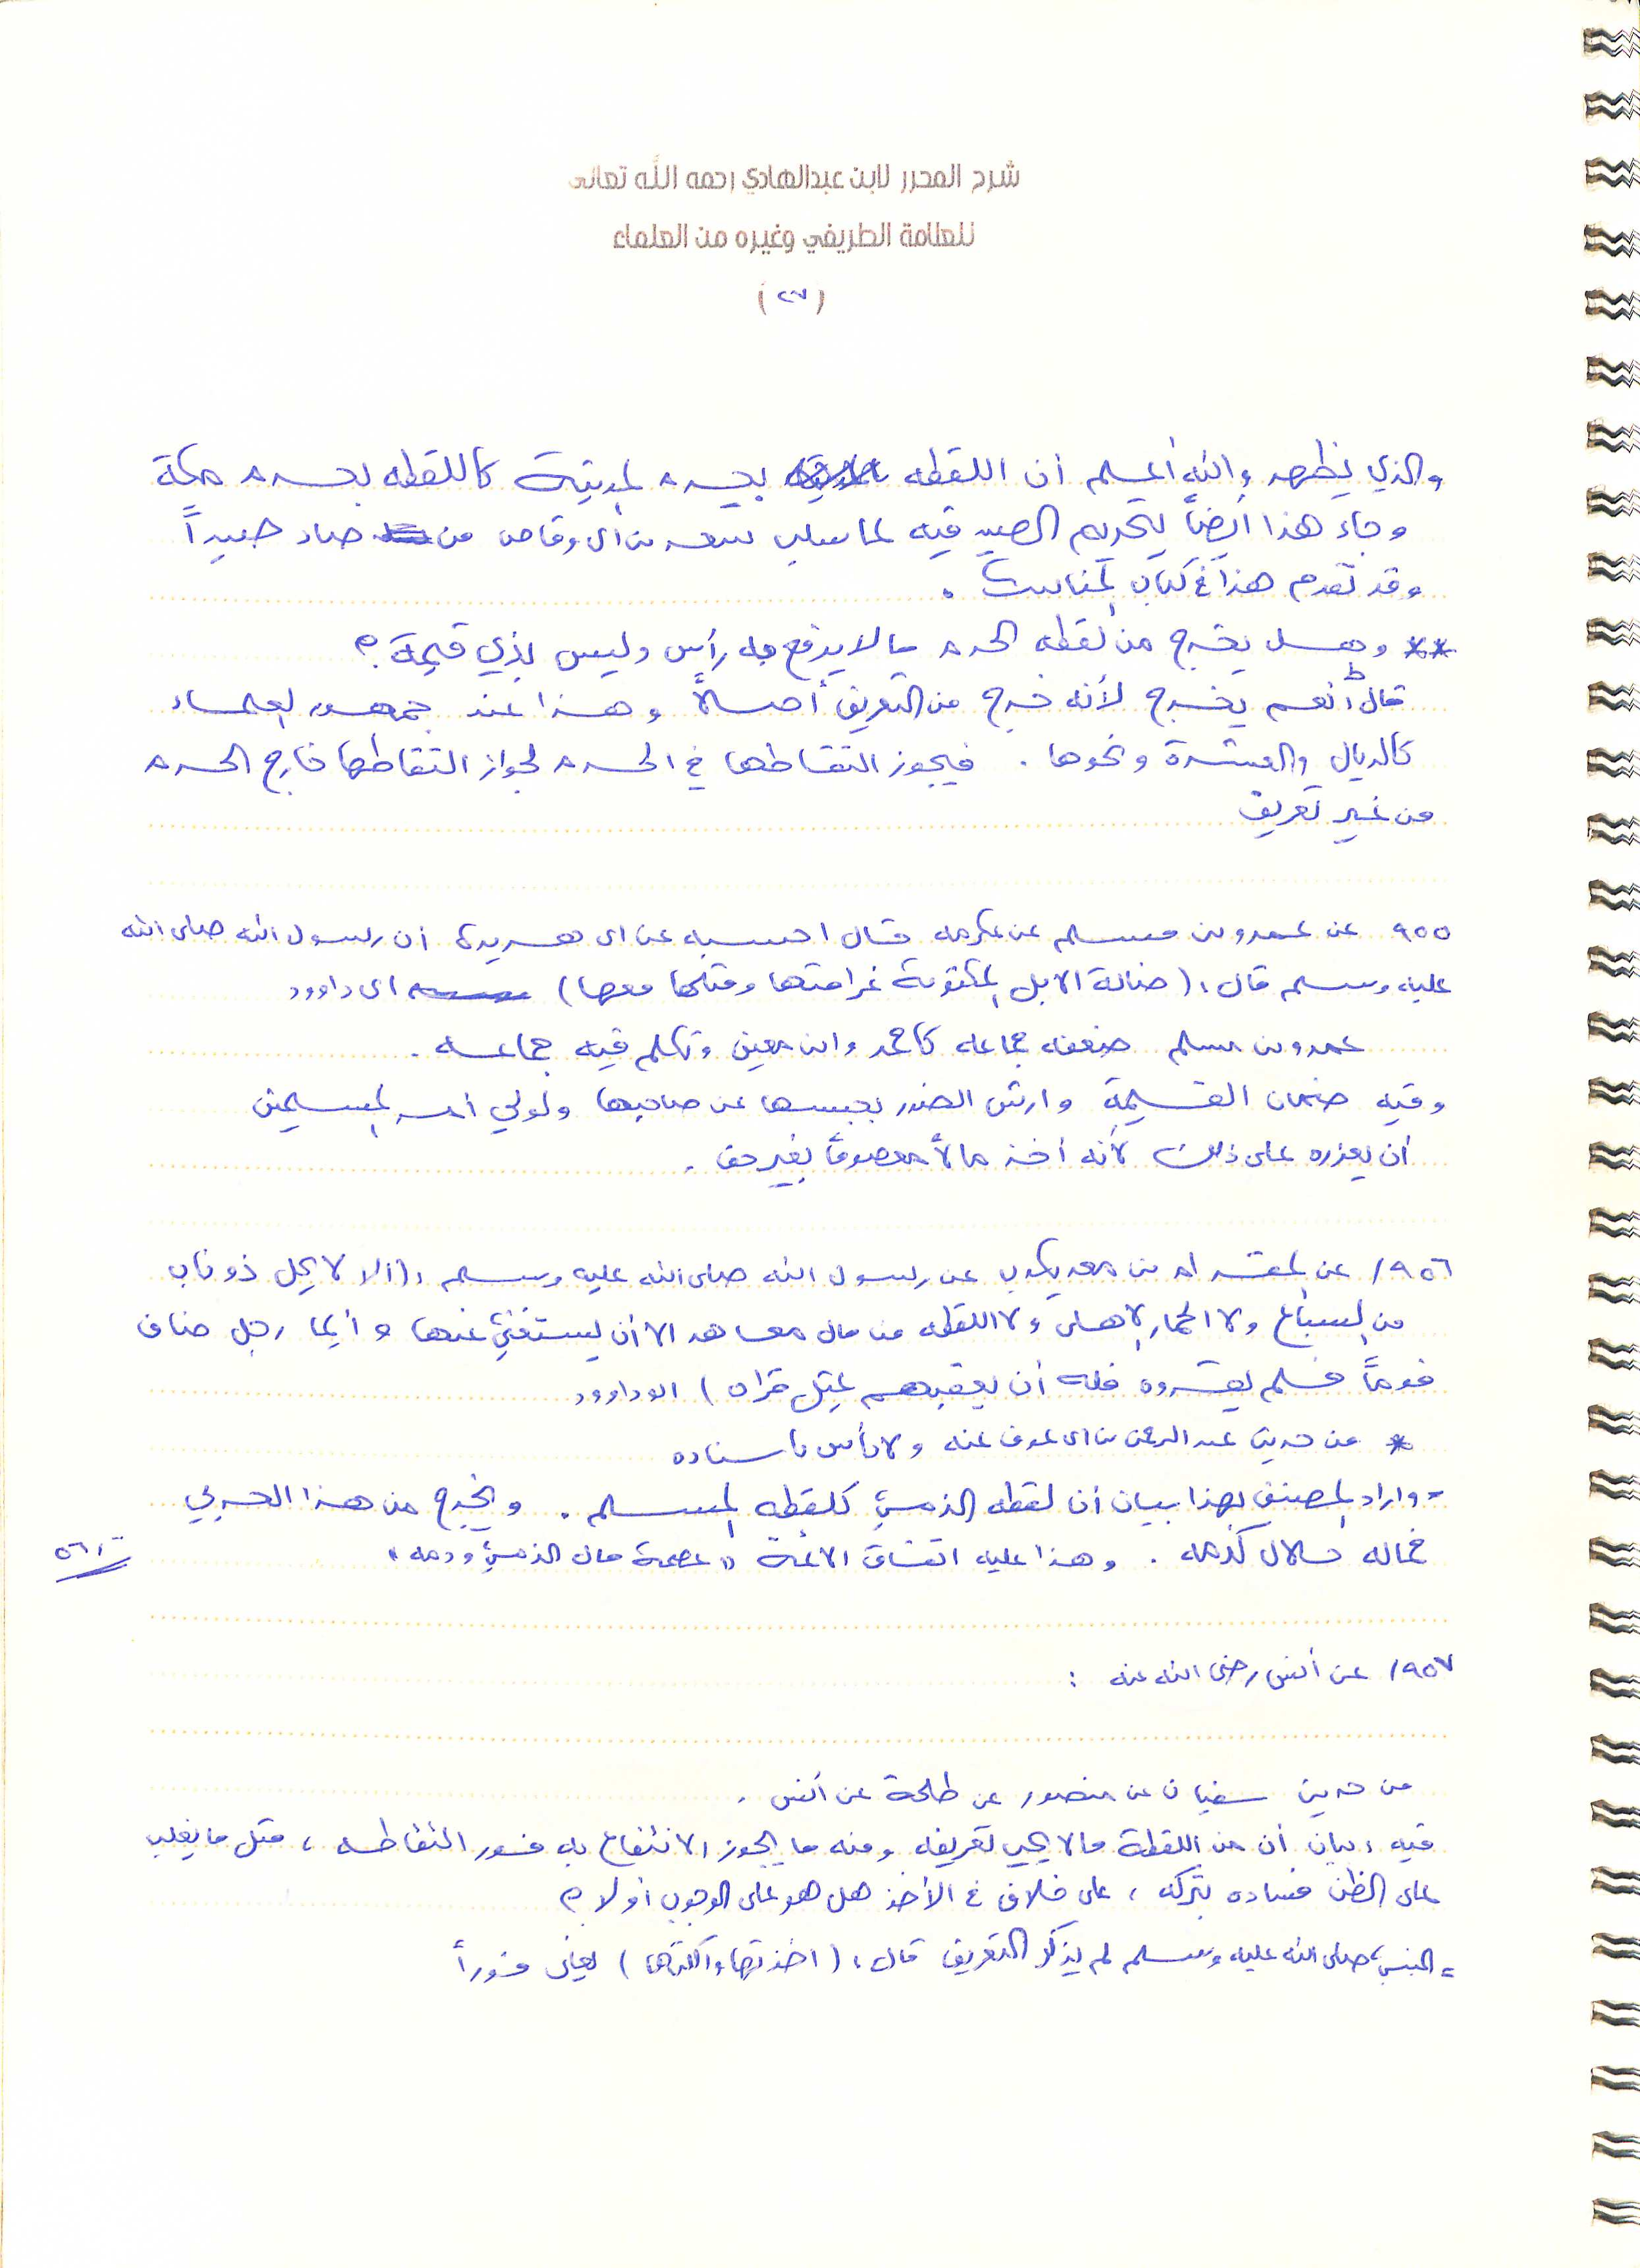 شرح المحرر لابن عبدالهادي رحمه الله تعالى
للعلامة الطريفي وغيره من العلماء
(٢٧)
والذي يظهر والله أعلم أن اللقطه بحرم المدينة كاللقطه بحرم مكة
وجاء هذا أيضاً بتحريم الصيد فيه لما سلب سعد بن أبي وقاص من صاد صيداً
وقد تقدم هذا في كتاب المناسك .
** وهل يخرج من لقطه الحرم مالا يرفع به رأس وليس بذي قيمة ؟
قال : نعم يخرج لأنه خرج من التعريف أصلاً وهذا عند جمهور العلماء
كالريال والعشرة ونحوها . فيجوز التقاطها في الحرم لجواز التقاطها خارج الحرم
من غير تعريف
٩٥٥ عن عمرو بن مسلم عن عكرمه قال احسبه عن ابي هريرة أن رسول الله صلى الله
عليه وسلم قال : (ضالة الابل المكتومة غرامتها ومثلها معها) ابي داوود
عمرو بن مسلم ضعفه جماعه كاحمد وابن معين وتكلم فيه جماعه .
وفيه ضمان القيمة وارش الضرر بحبسها عن صاحبها ولولي أمر المسلمين
أن يعزره على ذلك لأنه أخذ مالاً معصوماً بغير حق .
٩٥٦/ عن المقدام بن معد يكرب عن رسول الله صلى الله عليه وسلم : (ألا لا يحل ذو ناب
من السباع ولا الحمار الاهلي ولا اللقطه من مال معاهد الا أن يستغني عنها وأيما رجل ضاف
قوماً فلم يقروه فله أن يعقبهم بمثل قراه) ابو داوود
* من حديث عبد الرحمن بن ابي عوف عنه ولا بأس باسناده
- واراد المصنف بهذا بيان أن لقطه الذمي كلقطه المسلم . ويخرج من هذا الحربي
فماله حلال كدمه . وهذا عليه اتفاق الائمة " عصمة مال الذمي ودمه "
٩٥٧/ عن أنس رضي الله عنه :
من حديث سفيان عن منصور عن طلحة عن أنس .
فيه : بيان أن من اللقطة مالا يجب تعريفه ومنه ما يجوز الانتفاع به فور التقاطه ، مثل ما يغلب
على الظن فساده بتركه ، على خلاف في الأخذ هل هو على الوجوب أو لا ؟
= النبي صلى الله عليه وسلم لم يذكر التعريف قال : (اخذتها وأكلتها) يعني فوراً